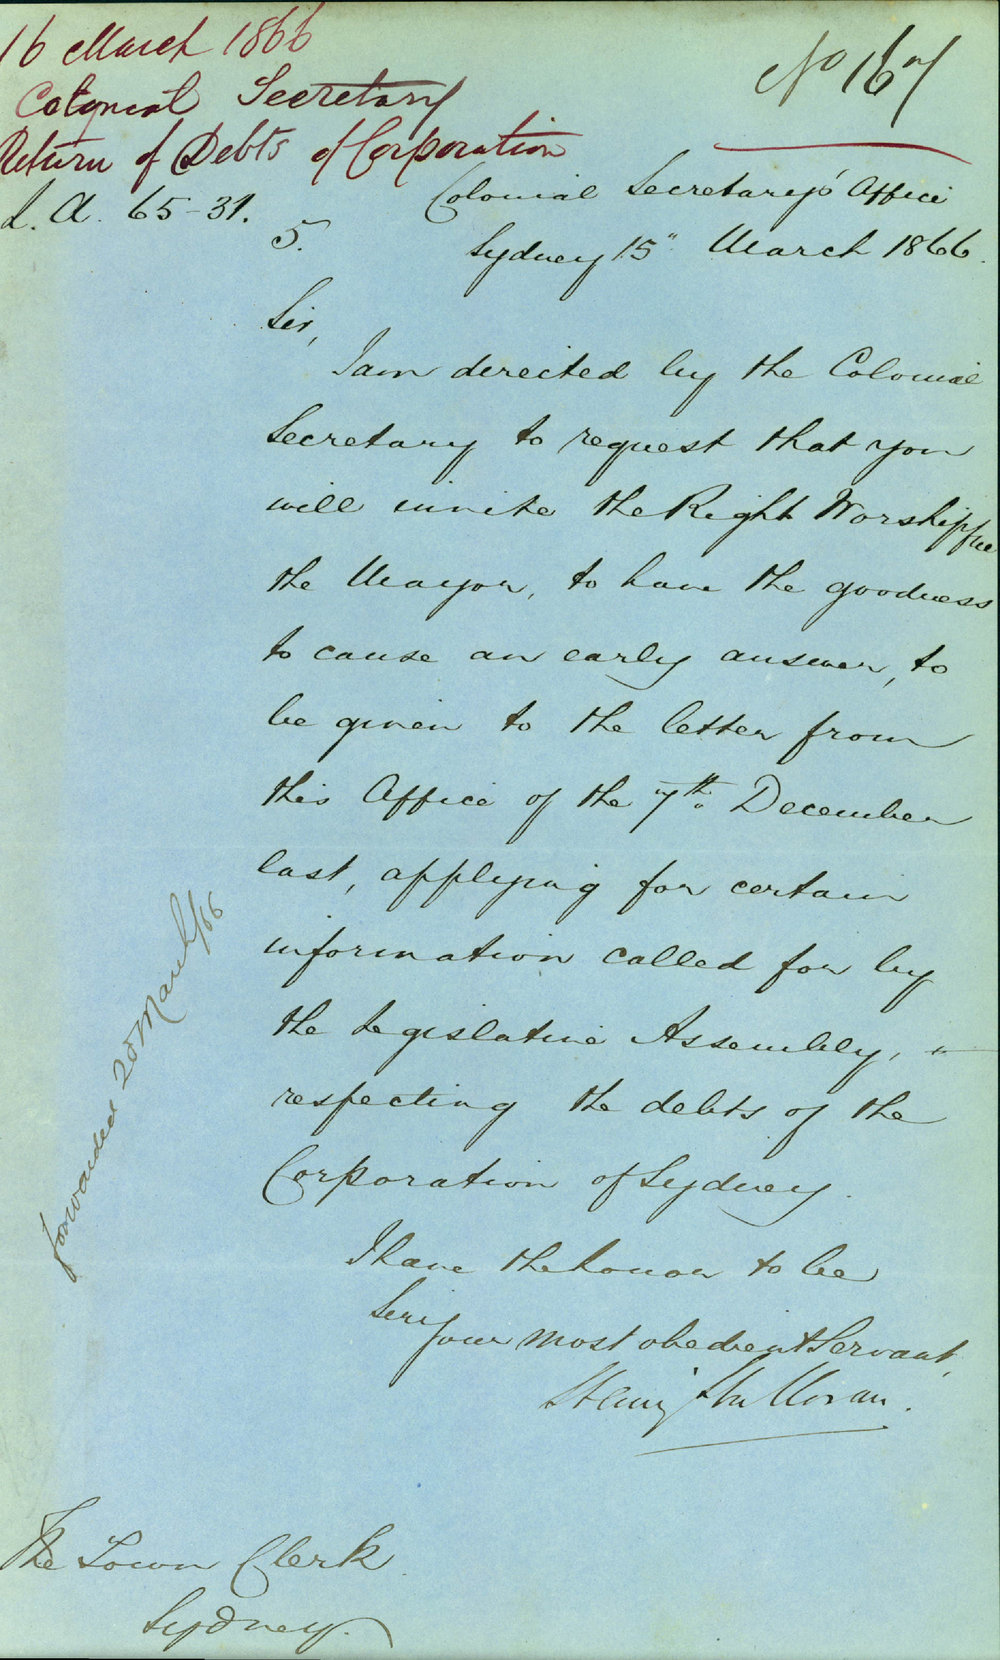 16 March 1866
Colonial Secretary
Return of Debts of Corporation
No 167
L. A. 65-31.
5.
Colonial Secretary's Office
Sydney 15" March 1866.
Sir,
I am directed by the Colonial
Secretary to request that you
will invite the Right Worshipful
the Mayor, to have the goodness
to cause an early answer, to
be given to the letter from
this Office of the 7th December
last, applying for certain
information called for by
the Legislative Assembly,
respecting the debts of the
Corporation of Sydney.
I have the honor to be
Sir
Your most obedient Servant,
Henry Halloran.
forwarded 20 March/66
The Town Clerk
Sydney.